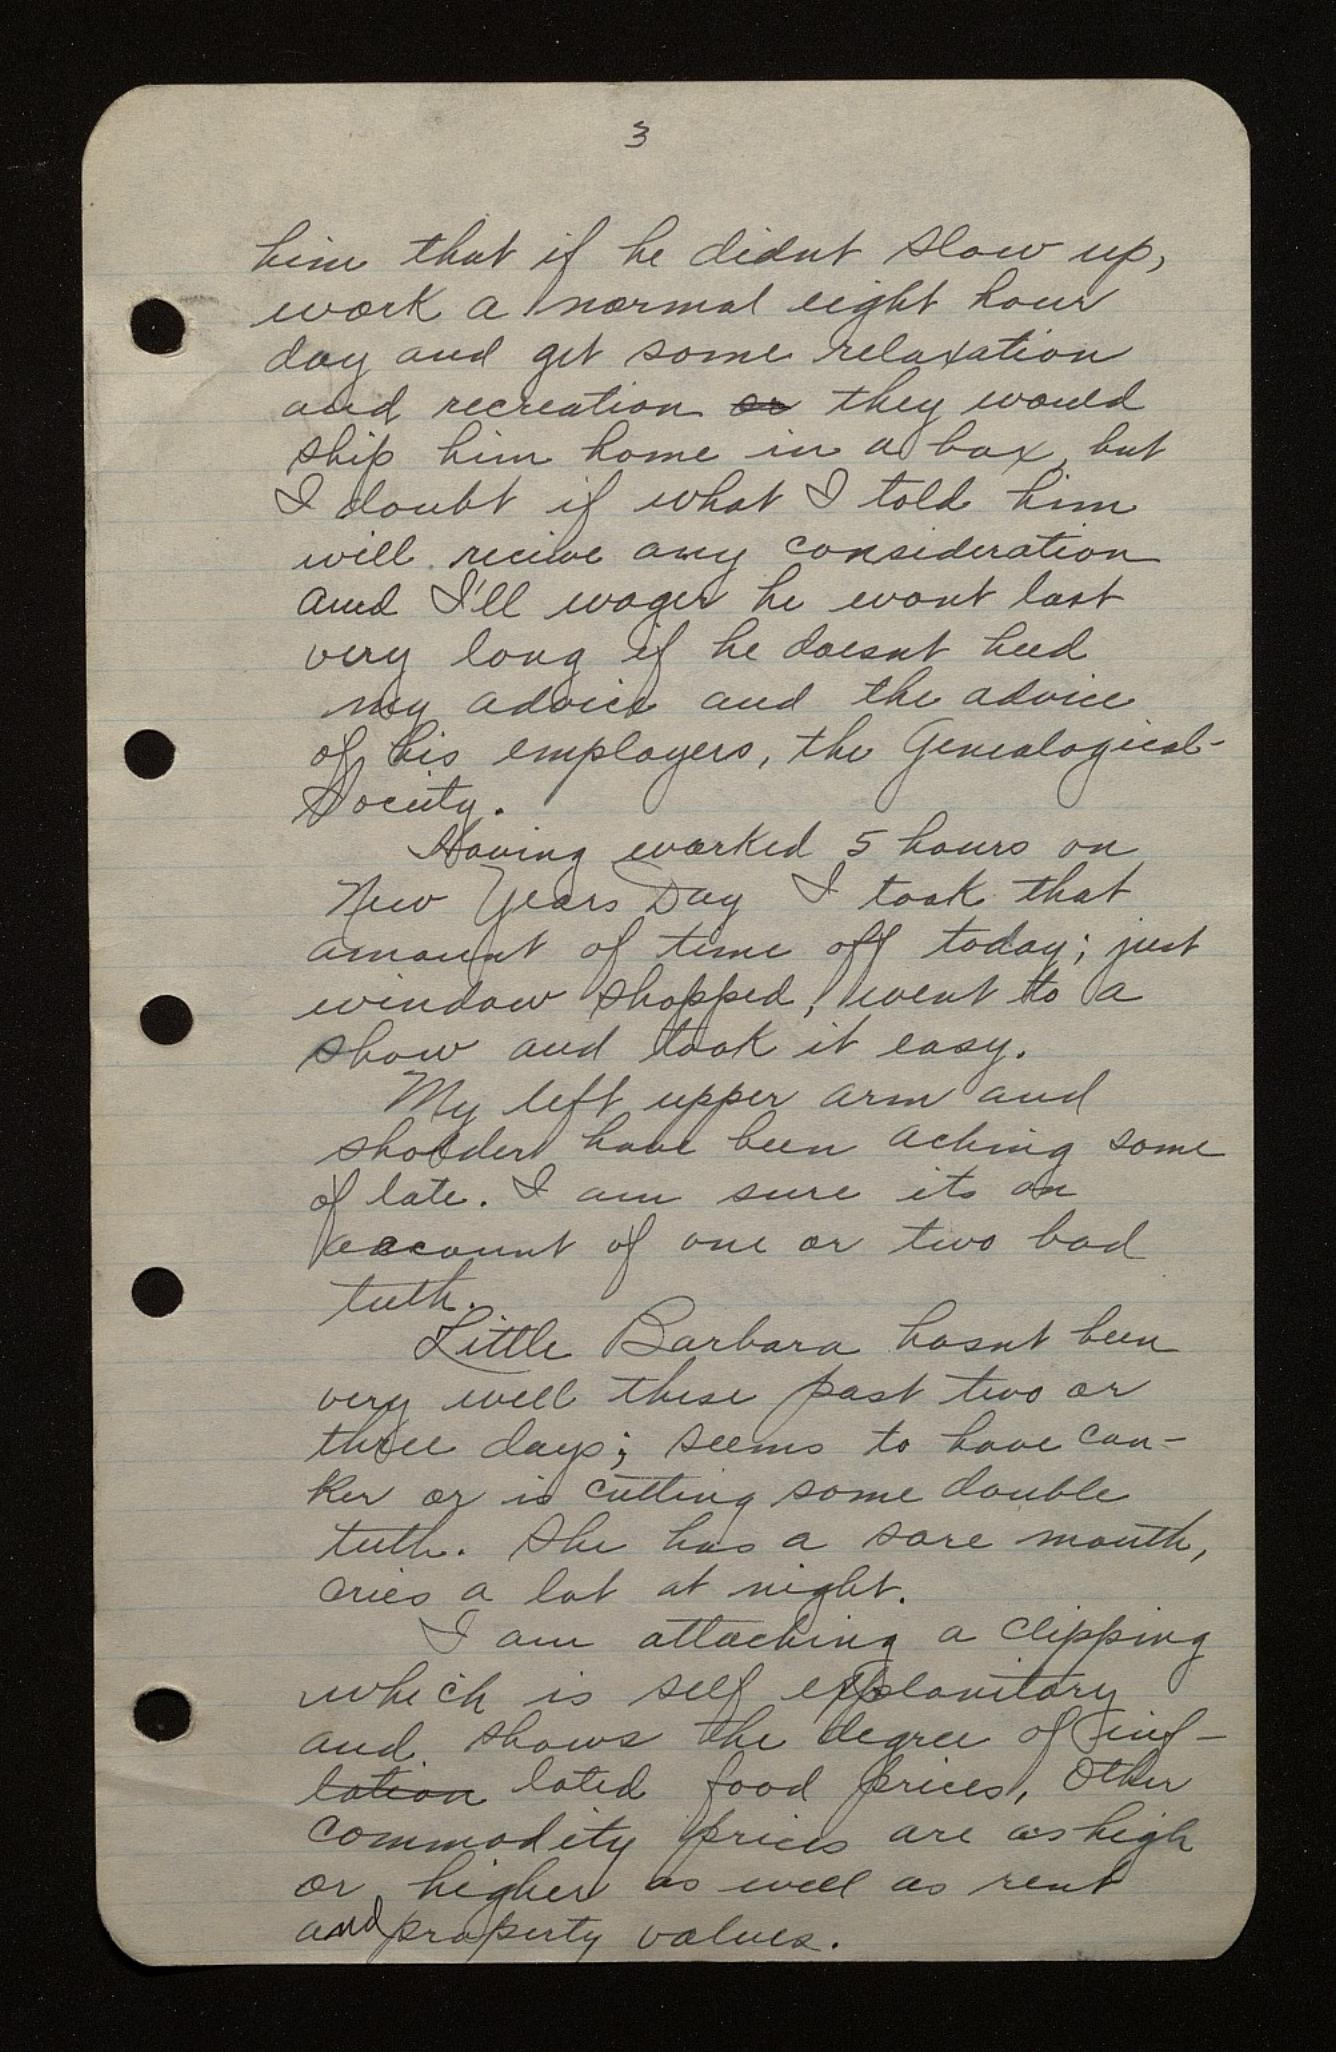 3
him that if he didnt slow up,
work a normal eight hour
day and get some relaxation
and recreation or they would
ship him home in a box, but
I doubt if what I told him
will recieve any consideration
and I'll wager he wont last
very long if he doesnt heed
my advice and the advice
of his employers, the Genealogical-
Society.
Having worked 5 hours on
New Years Day I took that
amount of time off today; just
window shopped, went to a
show and took it easy.
My left upper arm and
sholder have been aching some
of late. I am sure its on
account of one or two bad
teeth.
Little Barbara hasnt been
very well these past two or
three days; seems to have can-
ker or is cutting some double
teeth. She has a sore mouth,
cries a lot at night.
I am attaching a clipping
which is self explanitory
and shows the degree of inf-
lation lated food prices, Other
commodity prices are as high
or higher as well as rent
and property values.